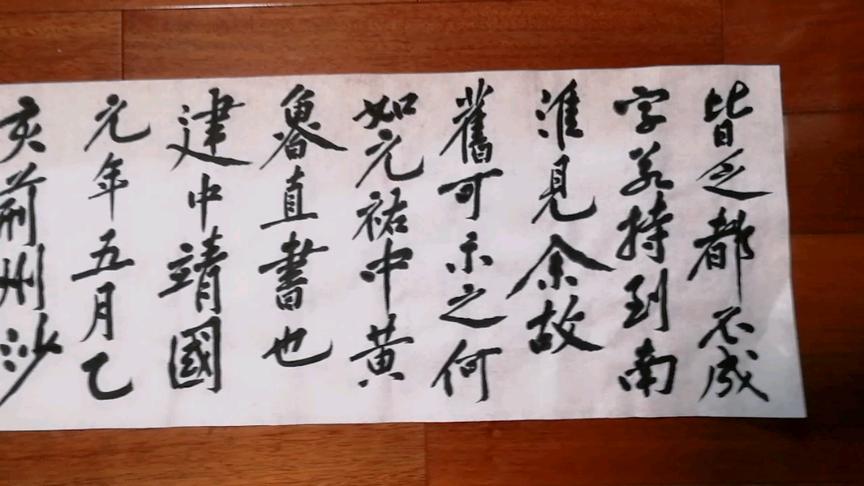 皆乏都不成
字若持到南
淮見余故
舊可示之何
如元祐中黄
魯直書也
建中靖國
元年五月乙
亥荊州沙